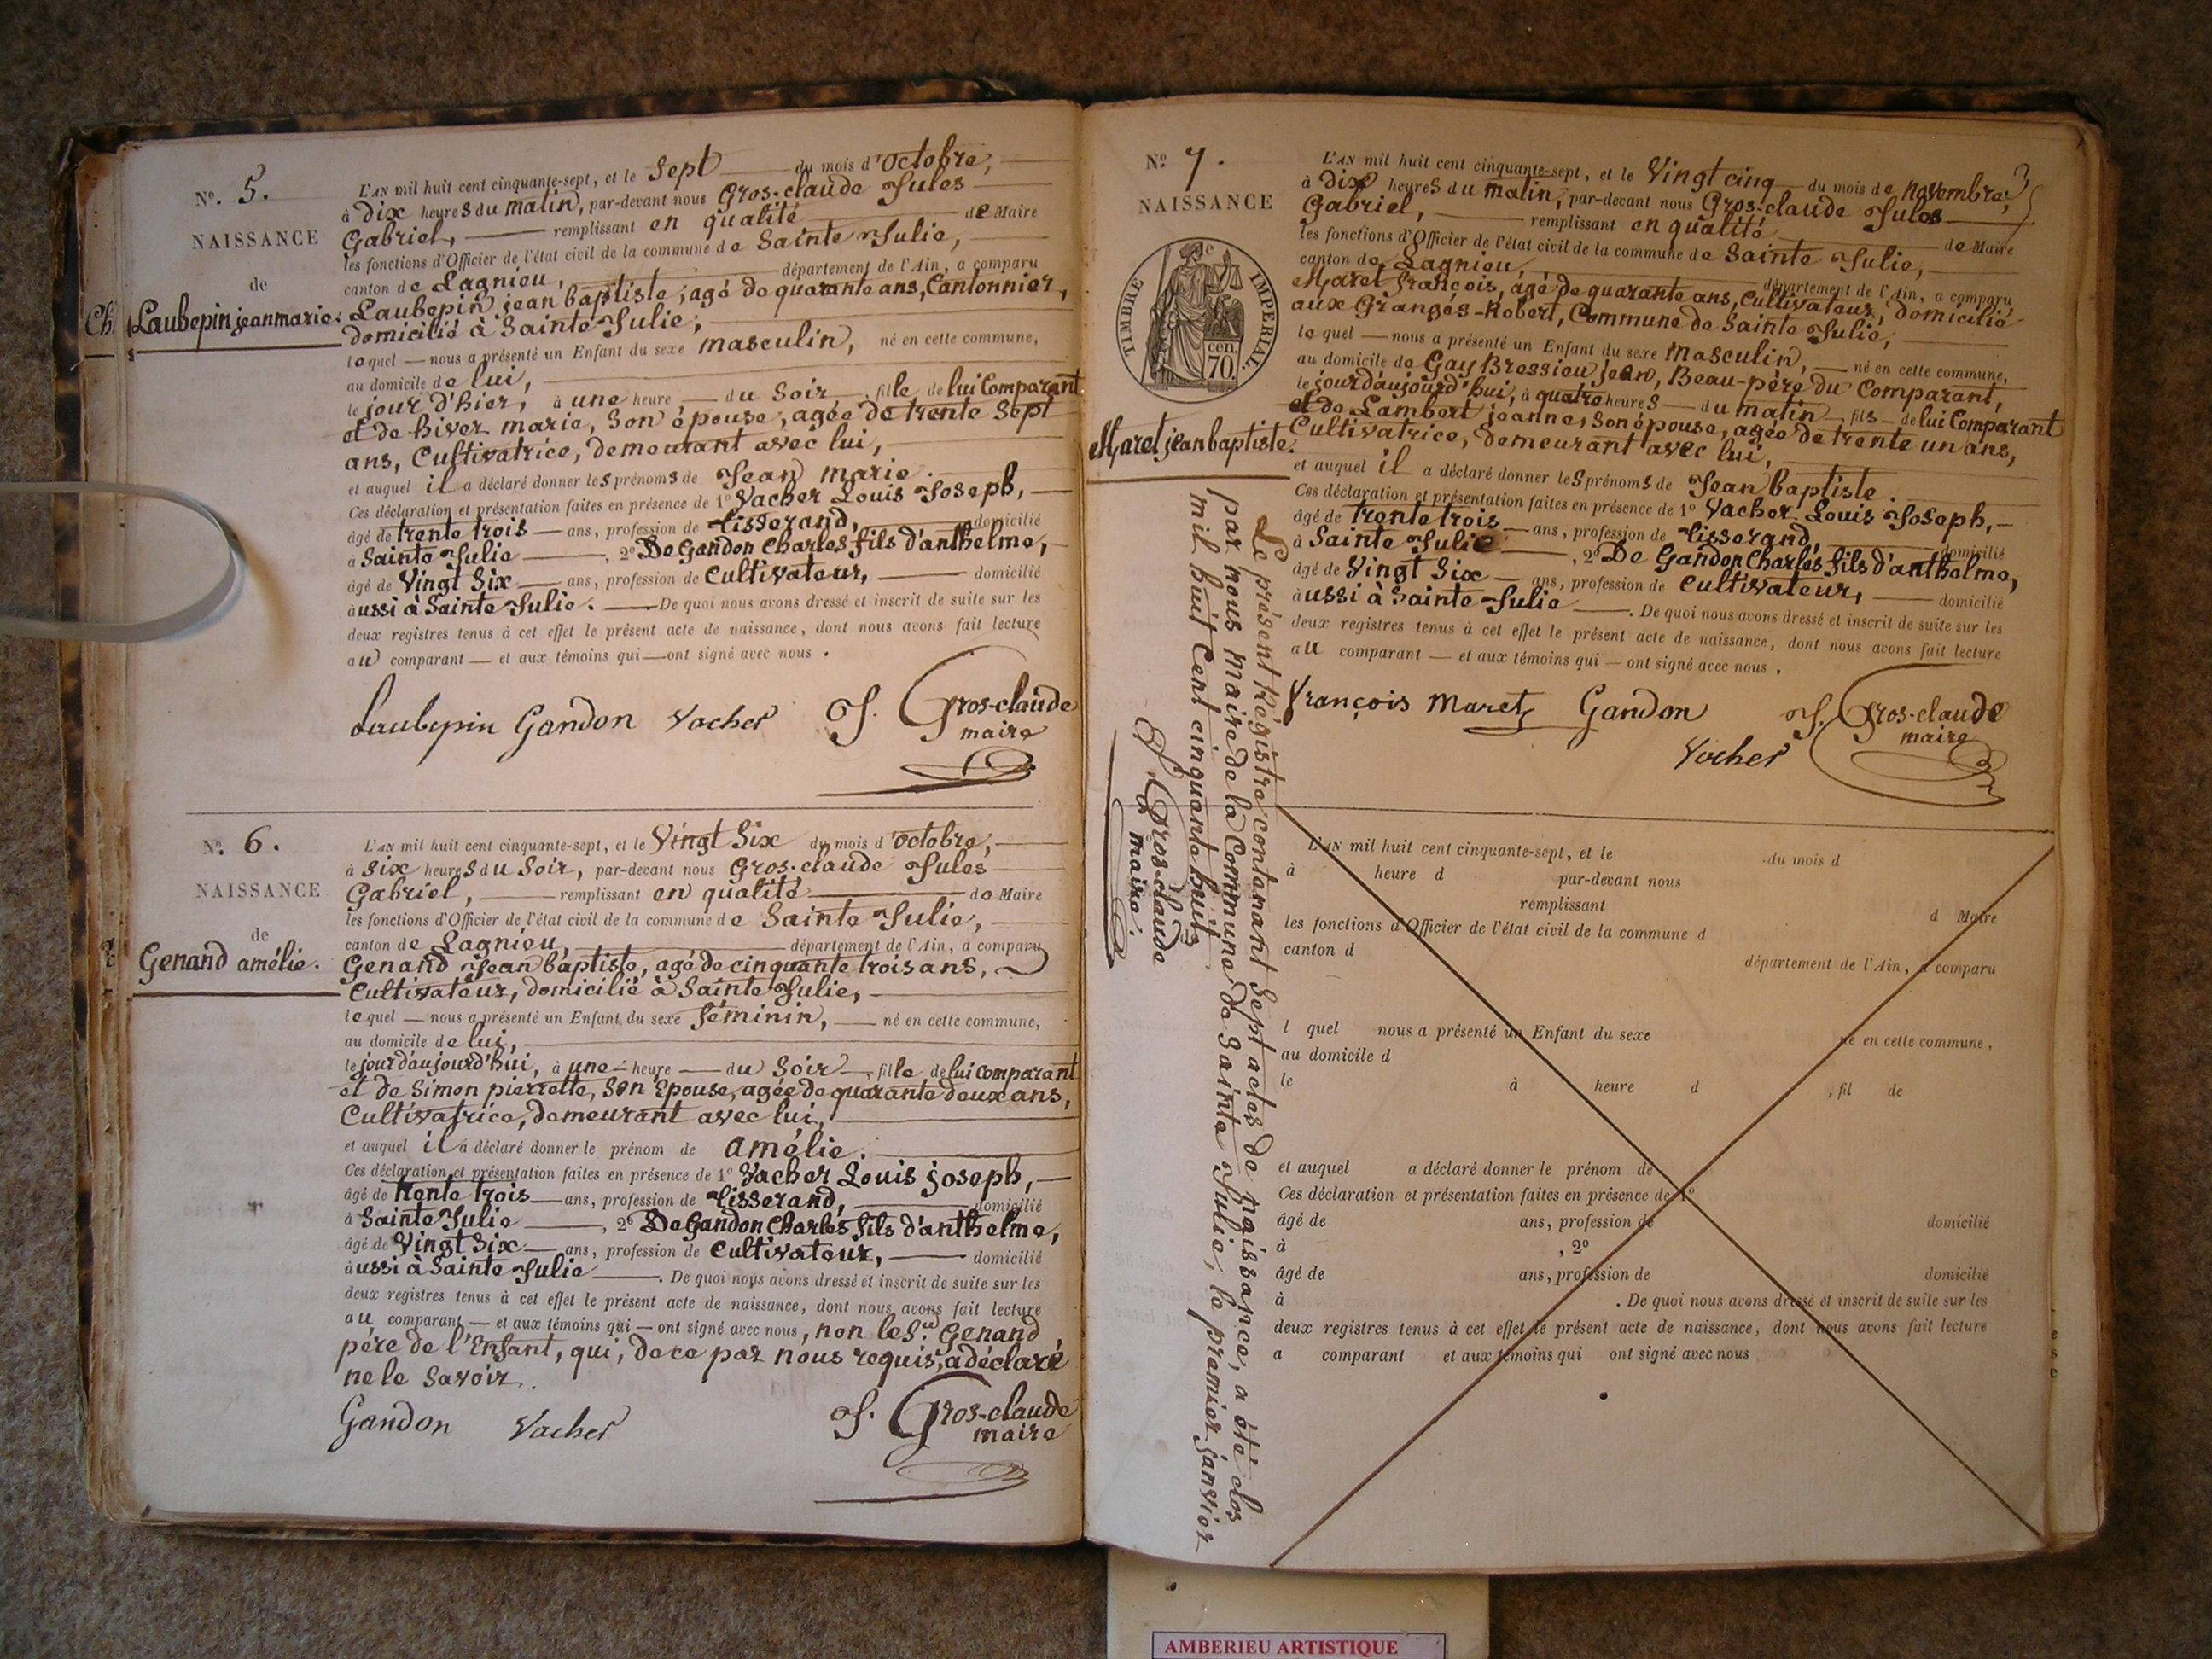 N°. 5.
NAISSANCE
de
Ch
Laubepin jean marie.
L'AN mil huit cent cinquante-sept, et le Sept du mois d'octobre,
à dix heures du matin, par-devant nous Gros-claude Jules
Gabriel, remplissant en qualité de Maire
les fonctions d'Officier de l'état civil de la commune de Sainte Julie,
canton de Lagnieu, département de l'Ain, a comparu
Laubepin jean baptiste, agé de quarante ans, Cantonnier,
domicilié à Sainte Julie,
lequel nous a présenté un Enfant du sexe masculin, né en cette commune,
au domicile de lui,
le jour d'hier, à une heure du Soir, fille de lui Comparant
et de hiver marie, Son épouse, agée de trente Sept
ans, Cultivatrice, demeurant avec lui,
et auquel il a déclaré donner les prénoms de Jean marie.
Ces déclaration et présentation faites en présence de 1° Vacher Louis Joseph,
âgé de trente trois ans, profession de tisserand, domicilié
à Sainte Julie, 2° De Gandon Charles fils d'anthelme,
âgé de Vingt Six ans, profession de Cultivateur, domicilié
à ussi à Sainte Julie. De quoi nous avons dressé et inscrit de suite sur les
deux registres tenus à cet effet le présent acte de naissance, dont nous avons fait lecture
au comparant et aux témoins qui ont signé avec nous.
Laubepin Gandon Vacher J. Gros-claude
maire
N°. 6.
NAISSANCE
de
Genand amélie.
L'AN mil huit cent cinquante-sept, et le Vingt Six du mois d'octobre,
à Six heures du Soir, par-devant nous Gros-claude Jules
Gabriel, remplissant en qualité de Maire
les fonctions d'Officier de l'état civil de la commune de Sainte Julie,
canton de Lagnieu, département de l'Ain, a comparu
Genand Jean baptiste, agé de cinquante trois ans,
Cultivateur, domicilié à Sainte Julie,
lequel nous a présenté un Enfant du sexe féminin, né en cette commune,
au domicile de lui,
le jour d'aujourd'hui, à une heure du Soir, fille de lui comparant
et de Simon pierrette, Son Epouse, agée de quarante deux ans,
Cultivatrice, demeurant avec lui,
et auquel il a déclaré donner le prénom de amélie.
Ces déclaration et présentation faites en présence de 1° Vacher Louis joseph,
âgé de trente trois ans, profession de tisserand, domicilié
à Sainte Julie, 2° De Gandon Charles fils d'anthelme,
âgé de Vingt Six ans, profession de Cultivateur, domicilié
à ussi à Sainte Julie. De quoi nous avons dressé et inscrit de suite sur les
deux registres tenus à cet effet le présent acte de naissance, dont nous avons fait lecture
au comparant et aux témoins qui ont signé avec nous, non le S.r Genand,
père de l'Enfant, qui, de ce par nous requis, a déclaré
ne le Savoir.
Gandon Vacher J. Gros-claude
maire
3
N° 7.
NAISSANCE
de
TIMBRE IMPERIAL.
cen. 70.
Maret jean baptiste.
L'AN mil huit cent cinquante-sept, et le Vingt cinq du mois de novembre,
à dix heures du matin, par-devant nous Gros-claude Jules
Gabriel, remplissant en qualité de Maire
les fonctions d'Officier de l'état civil de la commune de Sainte Julie,
canton de Lagnieu, département de l'Ain, a comparu
Maret françois, agé de quarante ans, Cultivateur, domicilié
aux Granges-Robert, Commune de Sainte Julie,
lequel nous a présenté un Enfant du sexe Masculin, né en cette commune,
au domicile de Gay Bressieu jean, Beau-père du Comparant,
le jour d'aujourd'hui, à quatre heures du matin fils de lui Comparant
et de Lambert jeanne, Son épouse, agée de trente un ans,
Cultivatrice, demeurant avec lui,
et auquel il a déclaré donner les prénoms de Jean baptiste.
Ces déclaration et présentation faites en présence de 1° Vacher Louis Joseph,
âgé de trente trois ans, profession de tisserand, domicilié
à Sainte Julie, 2° De Gandon Charles fils d'anthelme,
âgé de Vingt Six ans, profession de Cultivateur, domicilié
à ussi à Sainte Julie. De quoi nous avons dressé et inscrit de suite sur les
deux registres tenus à cet effet le présent acte de naissance, dont nous avons fait lecture
au comparant et aux témoins qui ont signé avec nous.
François Maret Gandon J. Gros-claude
maire
Vacher
Le présent Régistre contenant Sept actes de naissance, a été clos
par nous Maire de la Commune de Sainte Julie, le premier Janvier
mil huit Cent cinquante huit.
J. Gros-claude
maire.
L'AN mil huit cent cinquante-sept, et le du mois d
à heure d par-devant nous
remplissant d Maire
les fonctions d'Officier de l'état civil de la commune d
canton d département de l'Ain, a comparu
l quel nous a présenté un Enfant du sexe né en cette commune,
au domicile d
le à heure d , fil de
et auquel a déclaré donner le prénom de
Ces déclaration et présentation faites en présence de 1°
âgé de ans, profession de domicilié
à , 2°
âgé de ans, profession de domicilié
à . De quoi nous avons dressé et inscrit de suite sur les
deux registres tenus à cet effet le présent acte de naissance, dont nous avons fait lecture
a comparant et aux témoins qui ont signé avec nous
AMBERIEU ARTISTIQUE